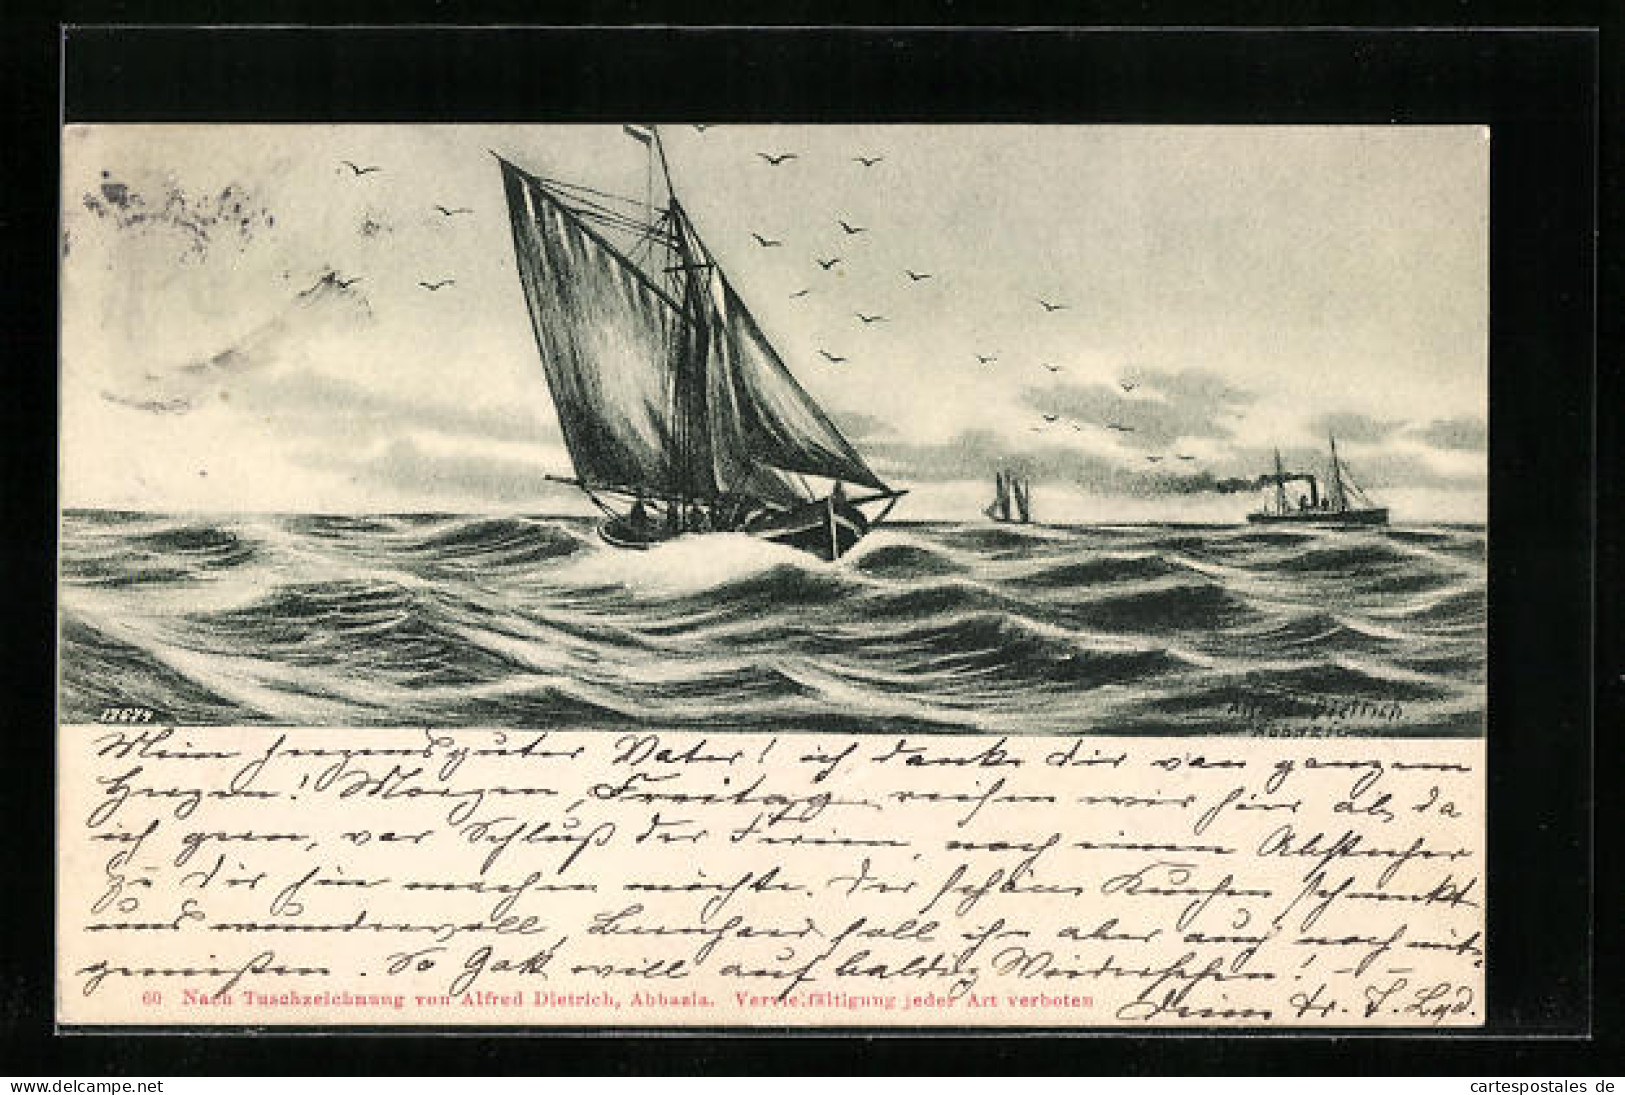 17674
Alfred Dietrich
Abbazia
Mein herzensguter Vater! ich danke dir von ganzem
Herzen! Morgen, Freitag, reisen wir hier ab, da
ich gern, vor Schluß der Ferien, noch einen Abstecher
zu Dir hin machen möchte. Der schöne Kuchen schmeckt
uns wundervoll, soll ihn aber auch noch mit-
genießen. So Gott will auf baldig Wiedersehen! –
60 Nach Tuschzeichnung von Alfred Dietrich, Abbazia. Vervielfältigung jeder Art verboten
Deine tr. T.
Delcampe.net
cartespostales de